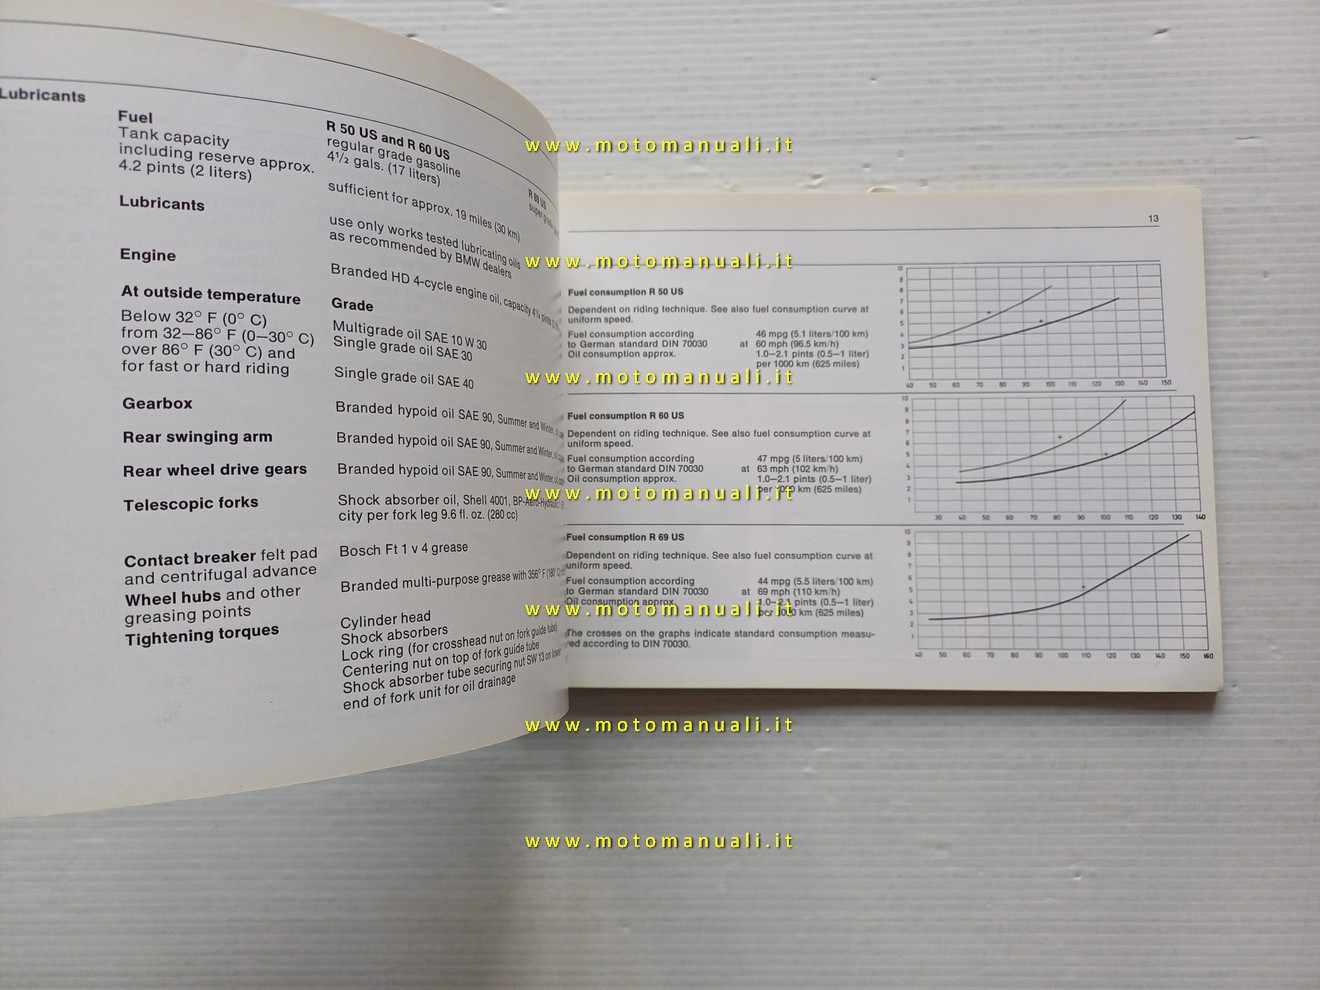 Lubricants
Fuel
Tank capacity
including reserve approx.
4.2 pints (2 liters)
R 50 US and R 60 US
regular grade gasoline
4½ gals. (17 liters)
sufficient for approx. 19 miles (30 km)
R 69 US
super
Lubricants
use only works tested lubricating oils
as recommended by BMW dealers
Engine
Branded HD 4-cycle engine oil, capacity 4¼ pints
At outside temperature
Grade
Below 32° F (0° C)
Multigrade oil SAE 10 W 30
from 32—86° F (0—30° C)
Single grade oil SAE 30
over 86° F (30° C) and
for fast or hard riding
Single grade oil SAE 40
Gearbox
Branded hypoid oil SAE 90, Summer and Winter,
Rear swinging arm
Branded hypoid oil SAE 90, Summer and Winter,
Rear wheel drive gears
Branded hypoid oil SAE 90, Summer and Winter,
Telescopic forks
Shock absorber oil, Shell 4001, BP-Aero-Hydraulic 1
city per fork leg 9.6 fl. oz. (280 cc)
Contact breaker felt pad
and centrifugal advance
Bosch Ft 1 v 4 grease
Wheel hubs and other
greasing points
Branded multi-purpose grease with 356° F (180° C)
Tightening torques
Cylinder head
Shock absorbers
Lock ring (for crosshead nut on fork guide tube)
Centering nut on top of fork guide tube
Shock absorber tube securing nut SW 13 on lower
end of fork unit for oil drainage
13
Fuel consumption R 50 US
Dependent on riding technique. See also fuel consumption curve at
uniform speed.
Fuel consumption according 46 mpg (5.1 liters/100 km)
to German standard DIN 70030 at 60 mph (96.5 km/h)
Oil consumption approx. 1.0—2.1 pints (0.5—1 liter)
per 1000 km (625 miles)
10
9
8
7
6
5
4
3
2
1
40 50 60 70 80 90 100 110 120 130 140 150
Fuel consumption R 60 US
Dependent on riding technique. See also fuel consumption curve at
uniform speed.
Fuel consumption according 47 mpg (5 liters/100 km)
to German standard DIN 70030 at 63 mph (102 km/h)
Oil consumption approx. 1.0—2.1 pints (0.5—1 liter)
per 1000 km (625 miles)
10
9
8
7
6
5
4
3
2
1
30 40 50 60 70 80 90 100 110 120 130 140
Fuel consumption R 69 US
Dependent on riding technique. See also fuel consumption curve at
uniform speed.
Fuel consumption according 44 mpg (5.5 liters/100 km)
to German standard DIN 70030 at 69 mph (110 km/h)
Oil consumption approx. 1.0—2.1 pints (0.5—1 liter)
per 1000 km (625 miles)
The crosses on the graphs indicate standard consumption measu-
red according to DIN 70030.
10
9
8
7
6
5
4
3
2
1
40 50 60 70 80 90 100 110 120 130 140 150 160
www.motomanuali.it
www.motomanuali.it
www.motomanuali.it
www.motomanuali.it
www.motomanuali.it
www.motomanuali.it
www.motomanuali.it